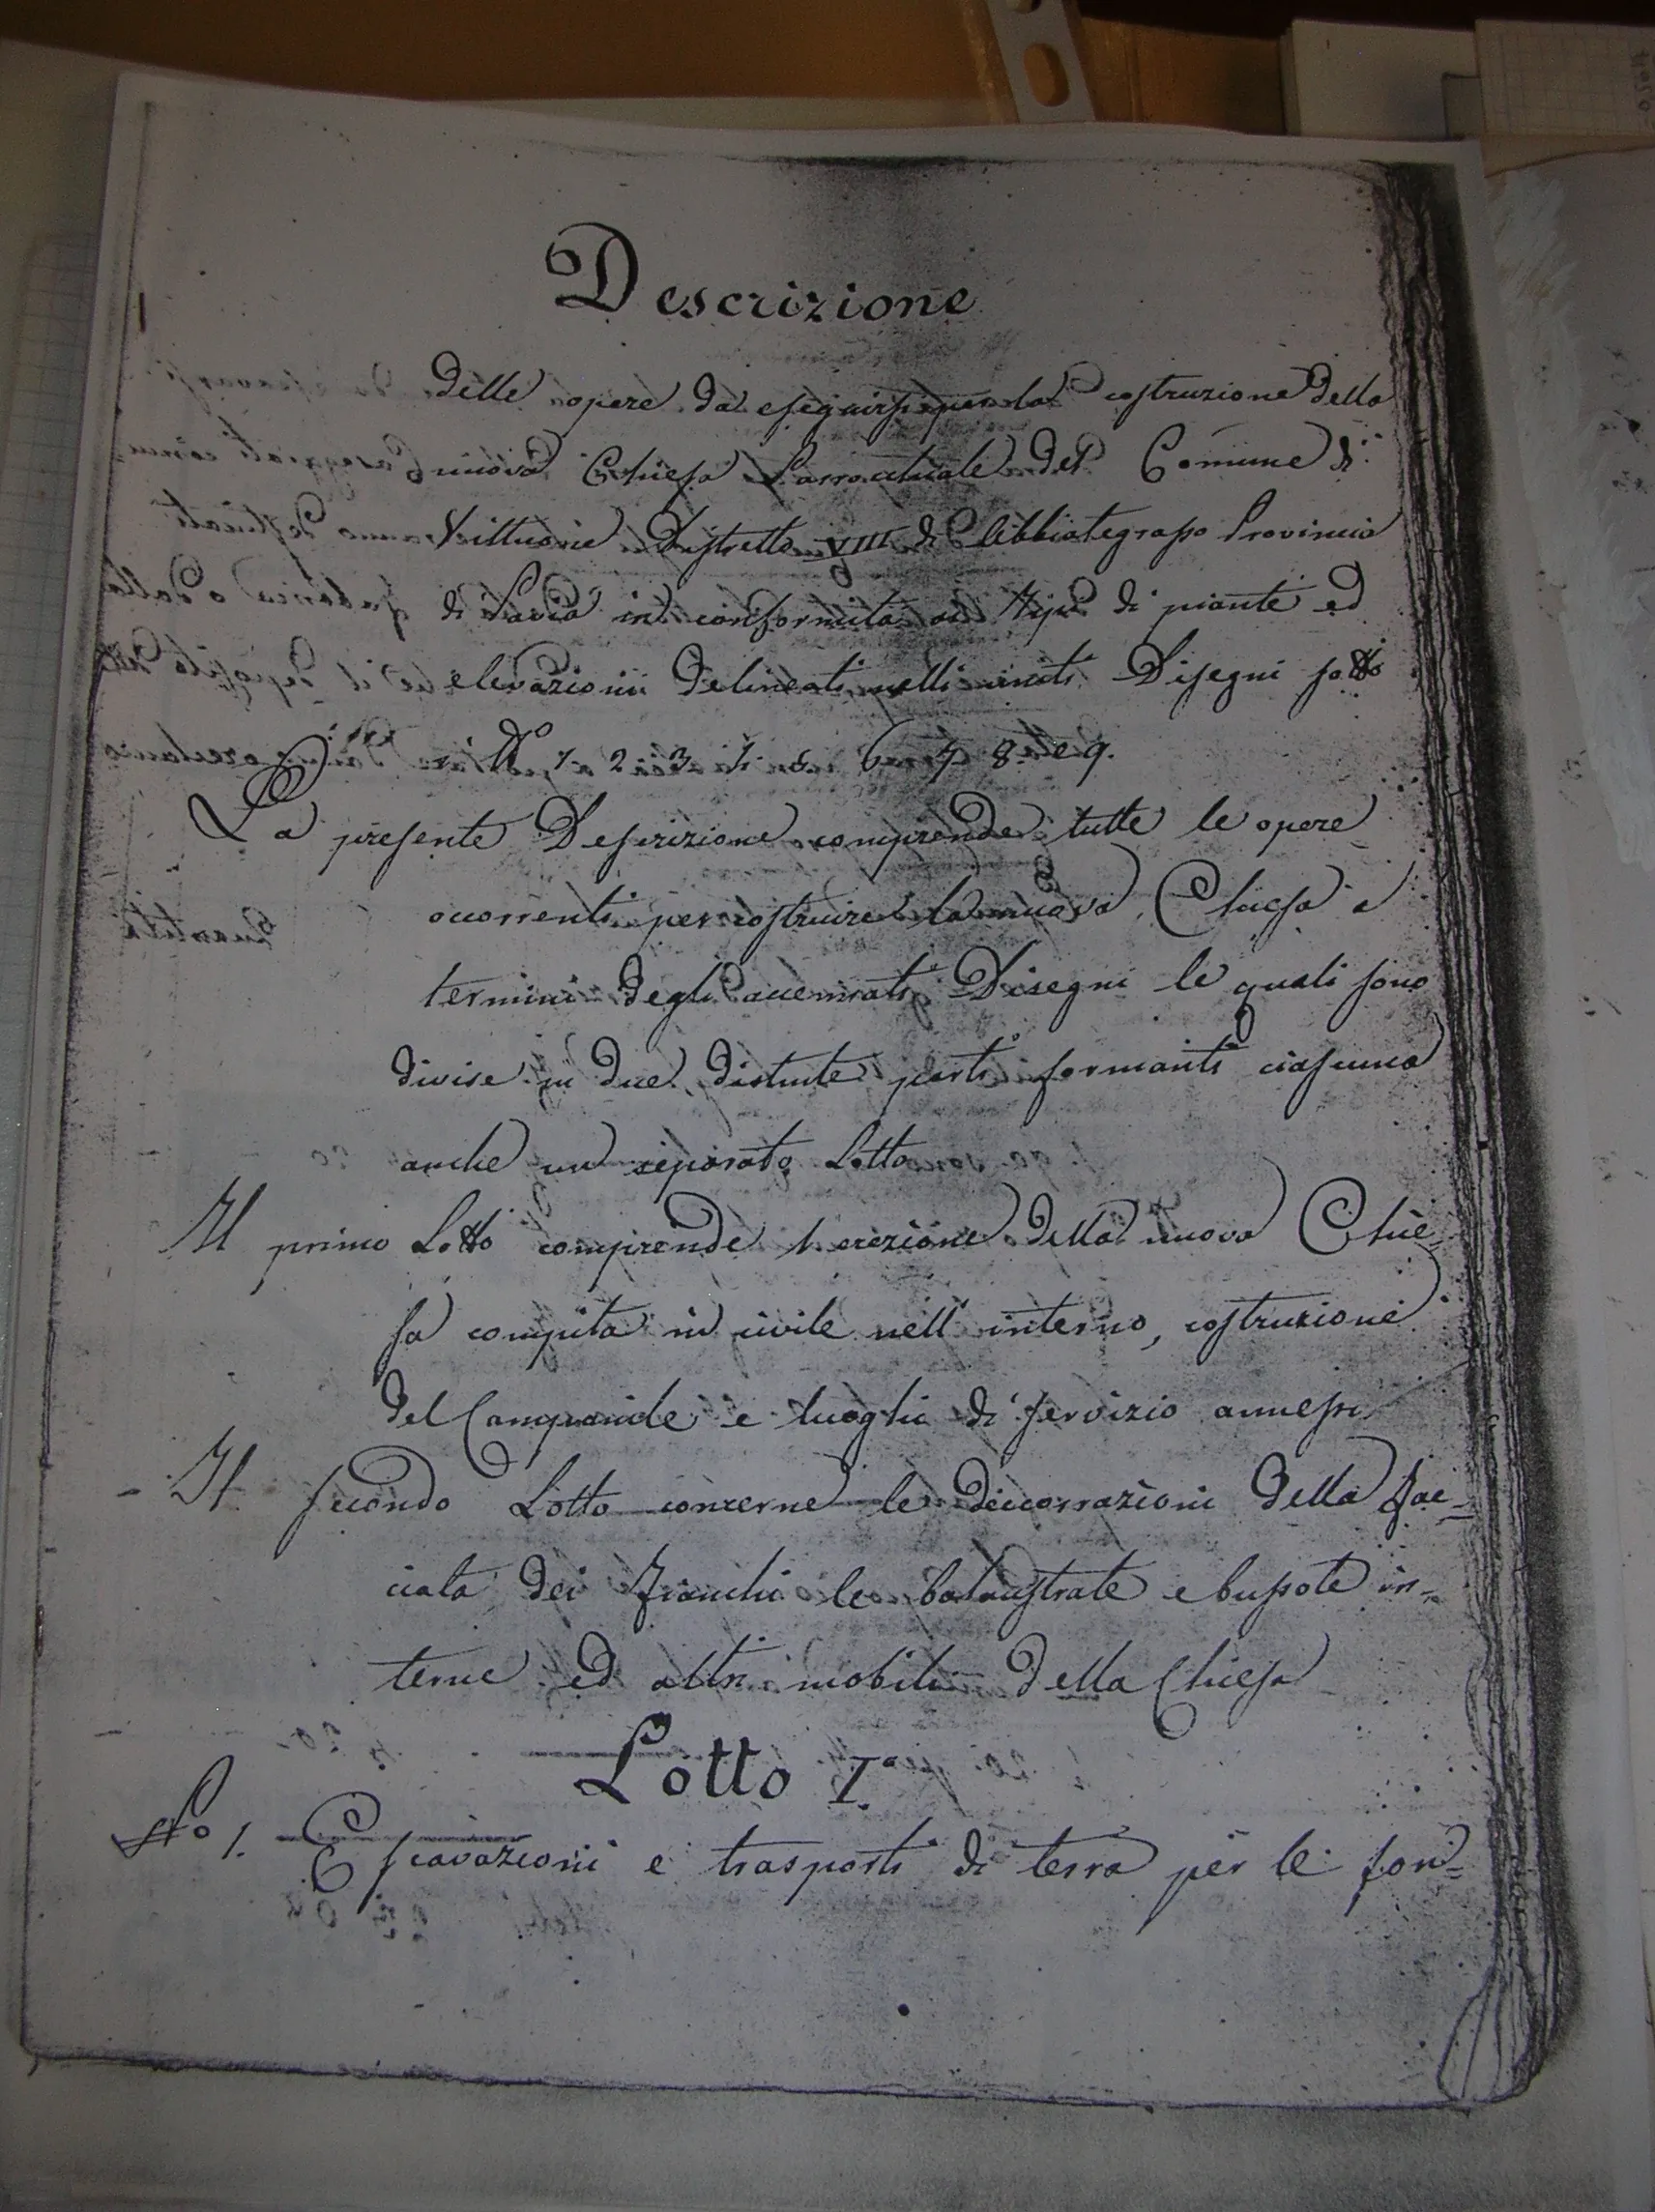 Descrizione
delle opere da eseguirsi per la costruzione della
nuova Chiesa Parrochiale del Comune di
Vittuone Distretto VIII di Abbiategrasso Provincia
di Pavia in conformità ai tipi di piante ed
elevazioni delineati nelli uniti Disegni sotto
N.º 1 2 3 4 5 6 7 8 e 9.
La presente Descrizione comprende tutte le opere
occorrenti per costruire la nuova Chiesa a
termini degli accennati Disegni le quali sono
divise in due distinte parti formanti ciascuna
anche un separato Lotto
Il primo Lotto comprende l'erezione della nuova Chie=
sa compita in civile nell'interno, costruzione
del Campanile e luoghi di servizio annessi
- Il secondo Lotto concerne le deccorrazioni della fac=
ciata dei fianchi le balaustrate e bussole in=
terne ed altri mobili della Chiesa
Lotto Iº
Nº 1. Escavazioni e trasporti di terra per le fon=